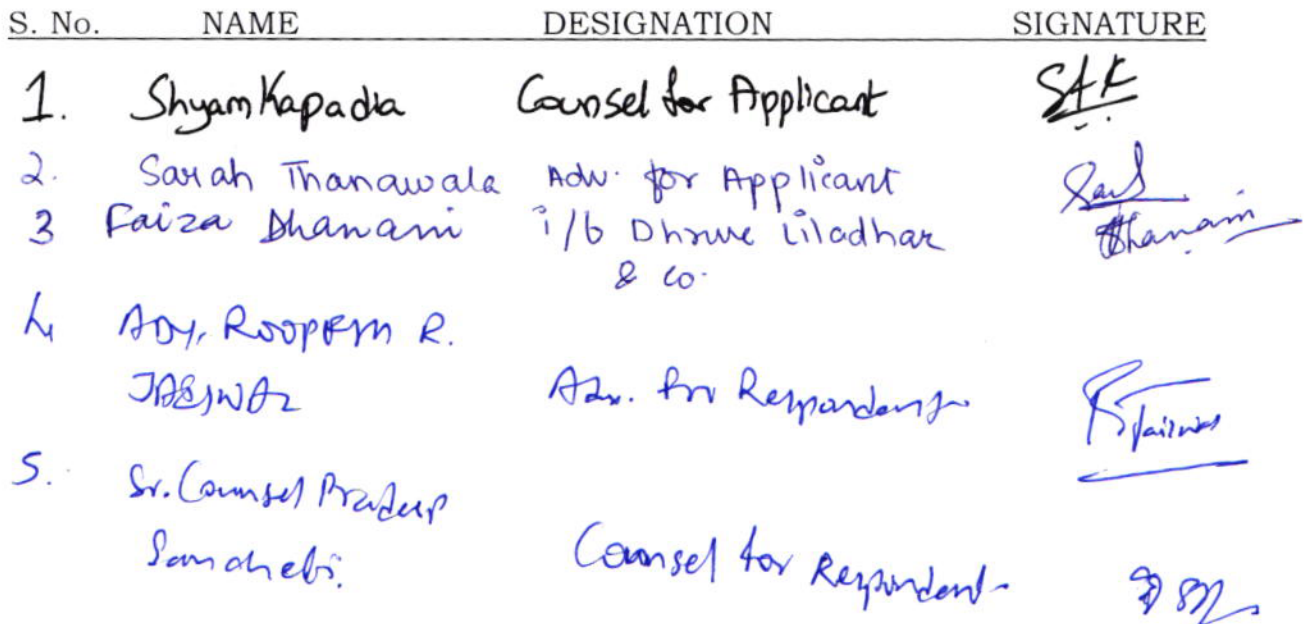 S. No. NAME DESIGNATION SIGNATURE
1. Shyam Kapadia Counsel for Applicant SAK
2. Sarah Thanawala Adv. for Applicant
3 Faiza Dhanani i/b Dhruve Liladhar Dhanani
& Co.
4 ADV. ROOPESH R.
JAISWAL Adv. for Respondent RJaiswal
5. Sr. Counsel Pradeep
Sancheti. Counsel for Respondent